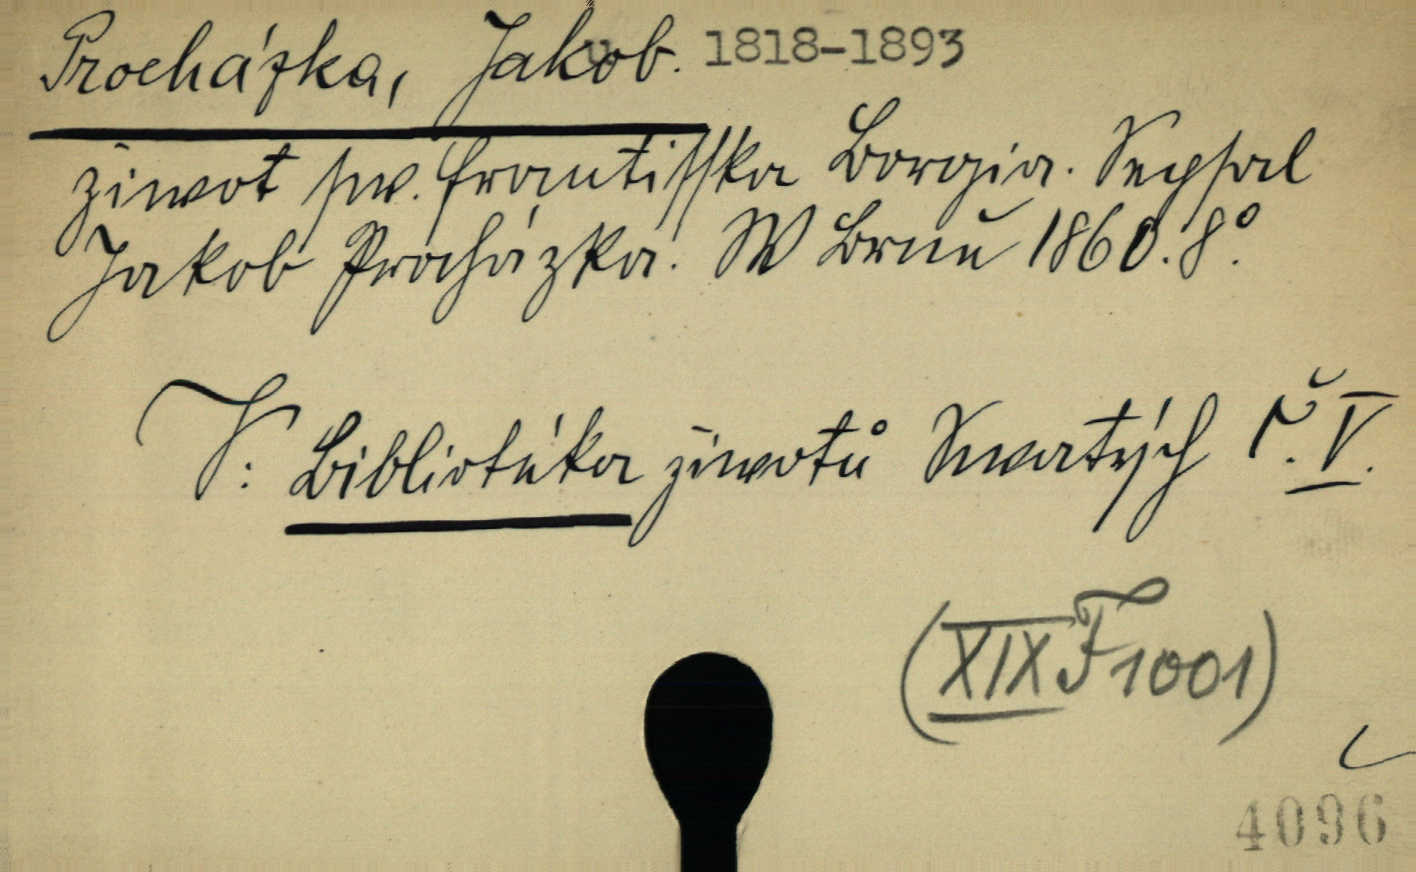 Procházka, Jakob. 1818-1893
Žiwot sw. Frantisska Borgia. Sepsal
Jakob Procházka. W Brně 1860. 8°.
V: Bibliotéka žiwotů Swatých č. V.
(XIX F 1001)
4096